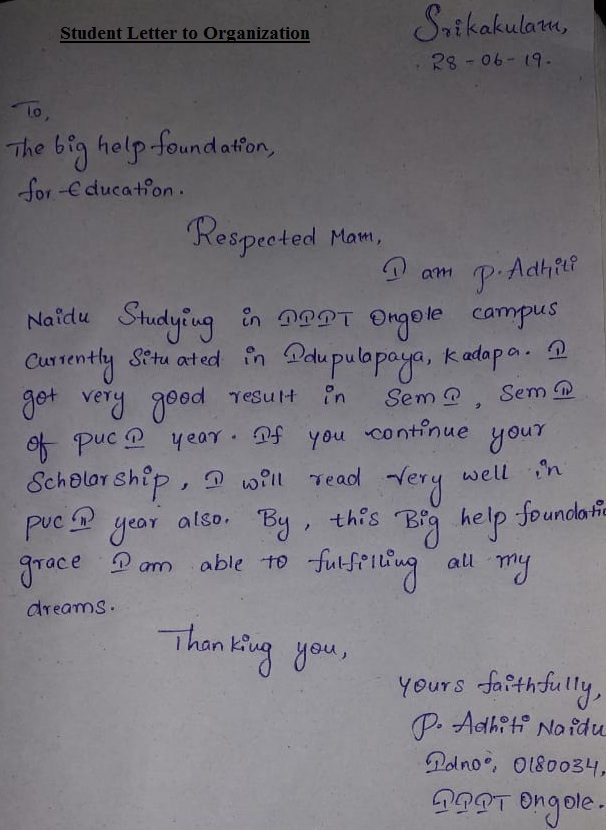 Student Letter to Organization
Srikakulam,
28-06-19.
To,
The big help foundation,
for Education.
Respected Mam,
I am P. Adhiti
Naidu Studying in IIIT Ongole campus
Currently Situated in Idupulapaya, Kadapa. I
got very good result in Sem I, Sem II
of PUC I year. If you continue your
Scholarship, I will read very well in
PUC II year also. By, this Big help foundatio
grace I am able to fulfilling all my
dreams.
Thanking you,
Yours faithfully,
P. Adhiti Naidu
Idno:, 0180034,
IIIT Ongole.